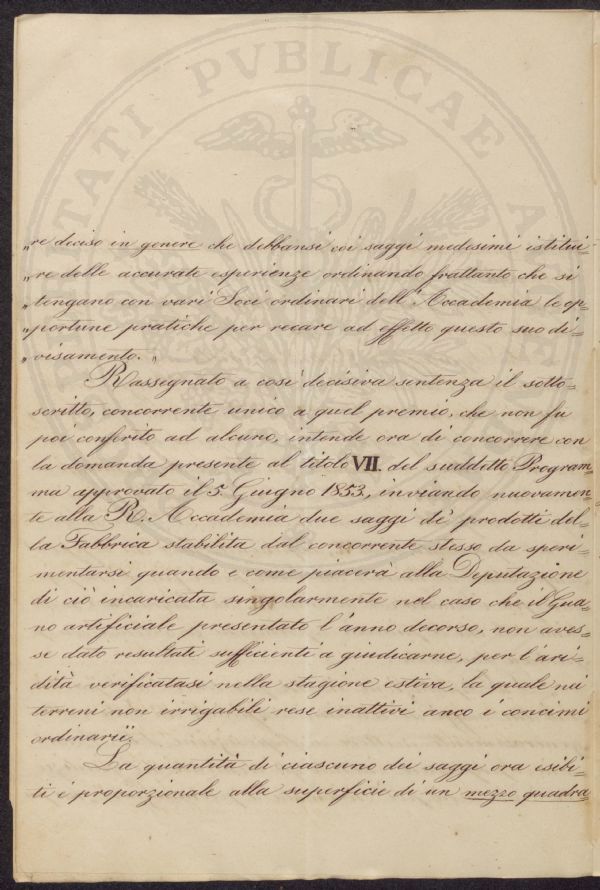 PROSPERITATI PVBLICAE A
„re deciso in genere che debbansi coi saggi medesimi istitui=
„re delle accurate esperienze ordinando frattanto che si
„tengano con vari Soci ordinari dell'Accademia le op=
„portune pratiche per recare ad effetto questo suo di=
„visamento. „
Rassegnato a così decisiva sentenza il sotto=
scritto, concorrente unico a quel premio, che non fu
poi conferito ad alcuno, intende ora di concorrere con
la domanda presente al titolo VII. del suddetto Program=
ma approvato il 5. Giugno 1853., inviando nuovamen=
te alla R. Accademia due saggi de' prodotti del=
la Fabbrica stabilita dal concorrente stesso da speri=
mentarsi quando e come piacerà alla Deputazione
di ciò incaricata singolarmente nel caso che il Gua=
no artificiale presentato l'anno decorso, non aves=
se dato resultati sufficienti a giudicarne, per l'ari=
dità verificatasi nella stagione estiva, la quale nei
terreni non irrigabili rese inattivi anco i concimi
ordinarii.
La quantità di ciascuno dei saggi ora esibi=
ti è proporzionale alla superficie di un mezzo quadra=